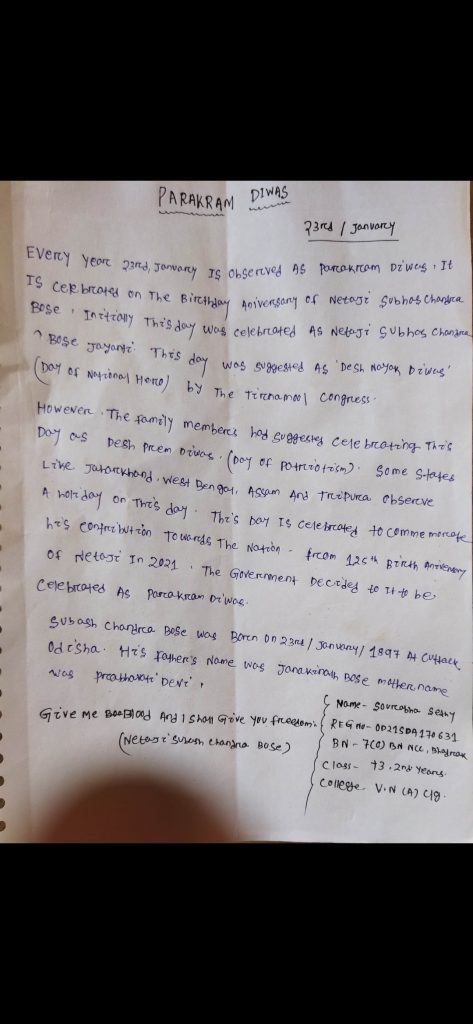 PARAKRAM DIWAS
23rd / January
Every year 23rd, January Is observed As Parakram Diwas. It
Is Celebrated on The Birthday Aniversary of Netaji Subhas Chandra
Bose. Initially This day was celebrated As Netaji Subhas Chandra
Bose Jayanti. This day was suggested As 'Desh Nayak Diwas'
(Day of National Hero) by The Tirnamool Congress.
However. The family members had suggested celebrating This
Day as Desh Prem Diwas. (Day of Patriotism). Some States
Like Jaharkhand, West Bengal, Assam And Tripura observe
A holiday on This day. This Day Is celebrated to commemorate
his contribution Towards The Nation. from 125th Birth Aniversary
of Netaji In 2021. The Government Decided to it to be
Celebrated As Parakram Diwas.
Subash Chandra Bose was Born On 23rd / January / 1897 At Cuttack
Odisha. His father's Name was Janakinath Bose mother name
was Prabhavati Devi.
Give Me Blood And I Shall Give you freedom.
(Netaji Subash Chandra Bose)
Name - Sourabha Sethy
REG no - OD21SDA170631
BN - 7(O) BN NCC, Bhadrak
Class - +3, 2nd years
College V.N (A) Clg.